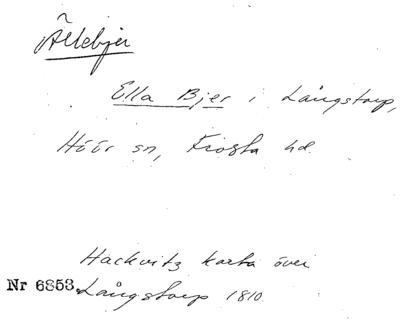 Ällebjer
Ella Bjer i Långstorp,
Höör sn, Frosta hd.
Hackvitz karta över
Nr 6853. Långstorp 1810.